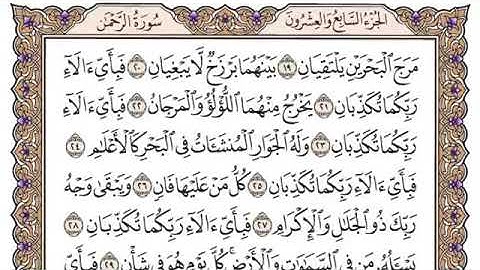 الجزء السابع والعشرون
سورة الرحمن
مَرَجَ ٱلۡبَحۡرَيۡنِ يَلۡتَقِيَانِ ١٩ بَيۡنَهُمَا بَرۡزَخٞ لَّا يَبۡغِيَانِ ٢٠ فَبِأَيِّ ءَالَآءِ
رَبِّكُمَا تُكَذِّبَانِ ٢١ يَخۡرُجُ مِنۡهُمَا ٱللُّؤۡلُؤُ وَٱلۡمَرۡجَانُ ٢٢ فَبِأَيِّ ءَالَآءِ
رَبِّكُمَا تُكَذِّبَانِ ٢٣ وَلَهُ ٱلۡجَوَارِ ٱلۡمُنشَـَٔاتُ فِي ٱلۡبَحۡرِ كَٱلۡأَعۡلَٰمِ ٢٤
فَبِأَيِّ ءَالَآءِ رَبِّكُمَا تُكَذِّبَانِ ٢٥ كُلُّ مَنۡ عَلَيۡهَا فَانٖ ٢٦ وَيَبۡقَىٰ وَجۡهُ
رَبِّكَ ذُو ٱلۡجَلَٰلِ وَٱلۡإِكۡرَامِ ٢٧ فَبِأَيِّ ءَالَآءِ رَبِّكُمَا تُكَذِّبَانِ ٢٨
يَسۡـَٔلُهُۥ مَن فِي ٱلسَّمَٰوَٰتِ وَٱلۡأَرۡضِۚ كُلَّ يَوۡمٍ هُوَ فِي شَأۡنٖ ٢٩ فَبِأَيِّ